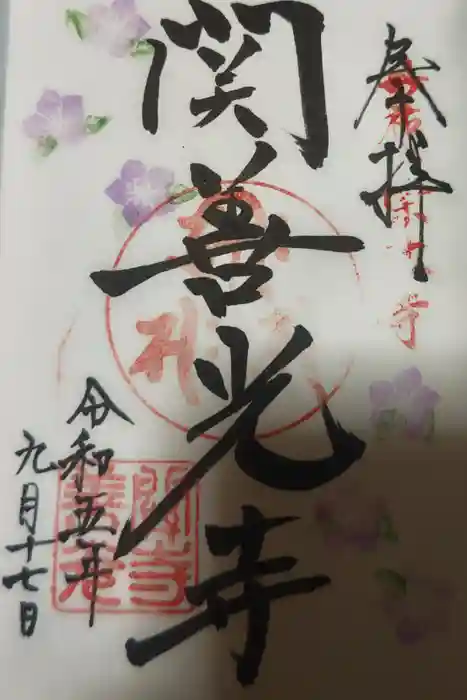 奉拝
関善光寺
令和五年
九月十七日